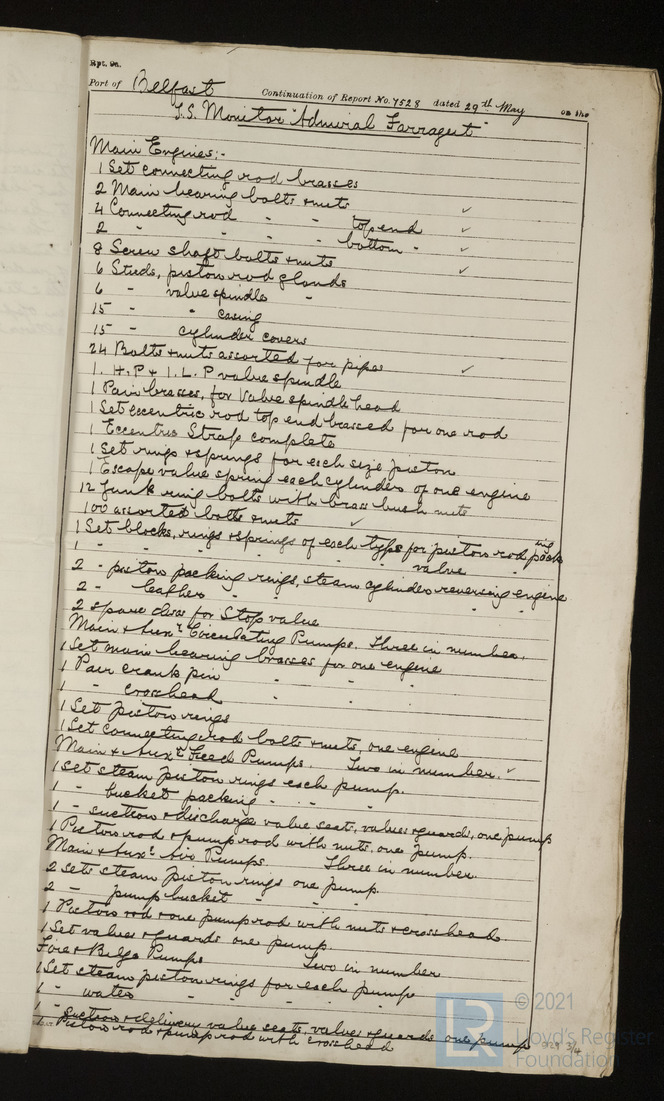 Rpt. 9a.
Port of Belfast Continuation of Report No. 7528 dated 29th May on the
S.S. Monitor "Admiral Farragut"
Main Engines:-
1 Set connecting rod brasses
2 Main bearing bolts & nuts ✓
4 Connecting rod - - top end ✓
2 - - - - bottom - ✓
8 Screw shaft bolts & nuts ✓
6 Studs, piston rod glands
6 - valve spindle -
15 - " casing
15 - cylinder covers
24 Bolts & nuts assorted for pipes ✓
1. H.P & 1. L.P valve spindle
1 Pair brasses, for Valve spindle head
1 Set eccentric rod top end brasses for one rod
1 Eccentric Strap complete
1 Set rings & springs for each size piston
1 Escape valve spring each cylinders of one engine
12 Junk ring bolts with brass bush nuts
100 assorted bolts & nuts ✓
1 Set blocks, rings & springs of each type for piston rod packing
1 - - - - - - - valve -
2 - piston packing rings, steam cylinder reversing engine
2 - leather - - - -
2 spare for Stop valve
Main & Auxy Circulating Pumps. Three in number.
1 Set main bearing brasses for one engine
1 Pair crank pin - - -
1 - crosshead - - -
1 Set Piston rings
1 Set Connecting rod bolts & nuts, one engine
Main & Auxy Feed Pumps. Two in number. ✓
1 set steam piston rings each pump.
1 - bucket packing - - -
1 - suction & discharge valve seat, valves & guards, one pump
1 Piston rod & pump rod with nuts, one pump.
Main & Auxy Air Pumps. Three in number.
2 sets steam piston rings one pump.
2 - pump bucket - - -
1 Piston rod & one pump rod with nuts & crosshead
1 Set valves & guards one pump
Fire & Bilge Pumps Two in number
1 Set steam piston rings for each pump
1 - water - - - -
1 - Suction & delivery valve seats, valves & guards one pump
1 - Piston rod & pump rod with crosshead
029 3/4
LR
© 2021
Lloyd's Register
Foundation